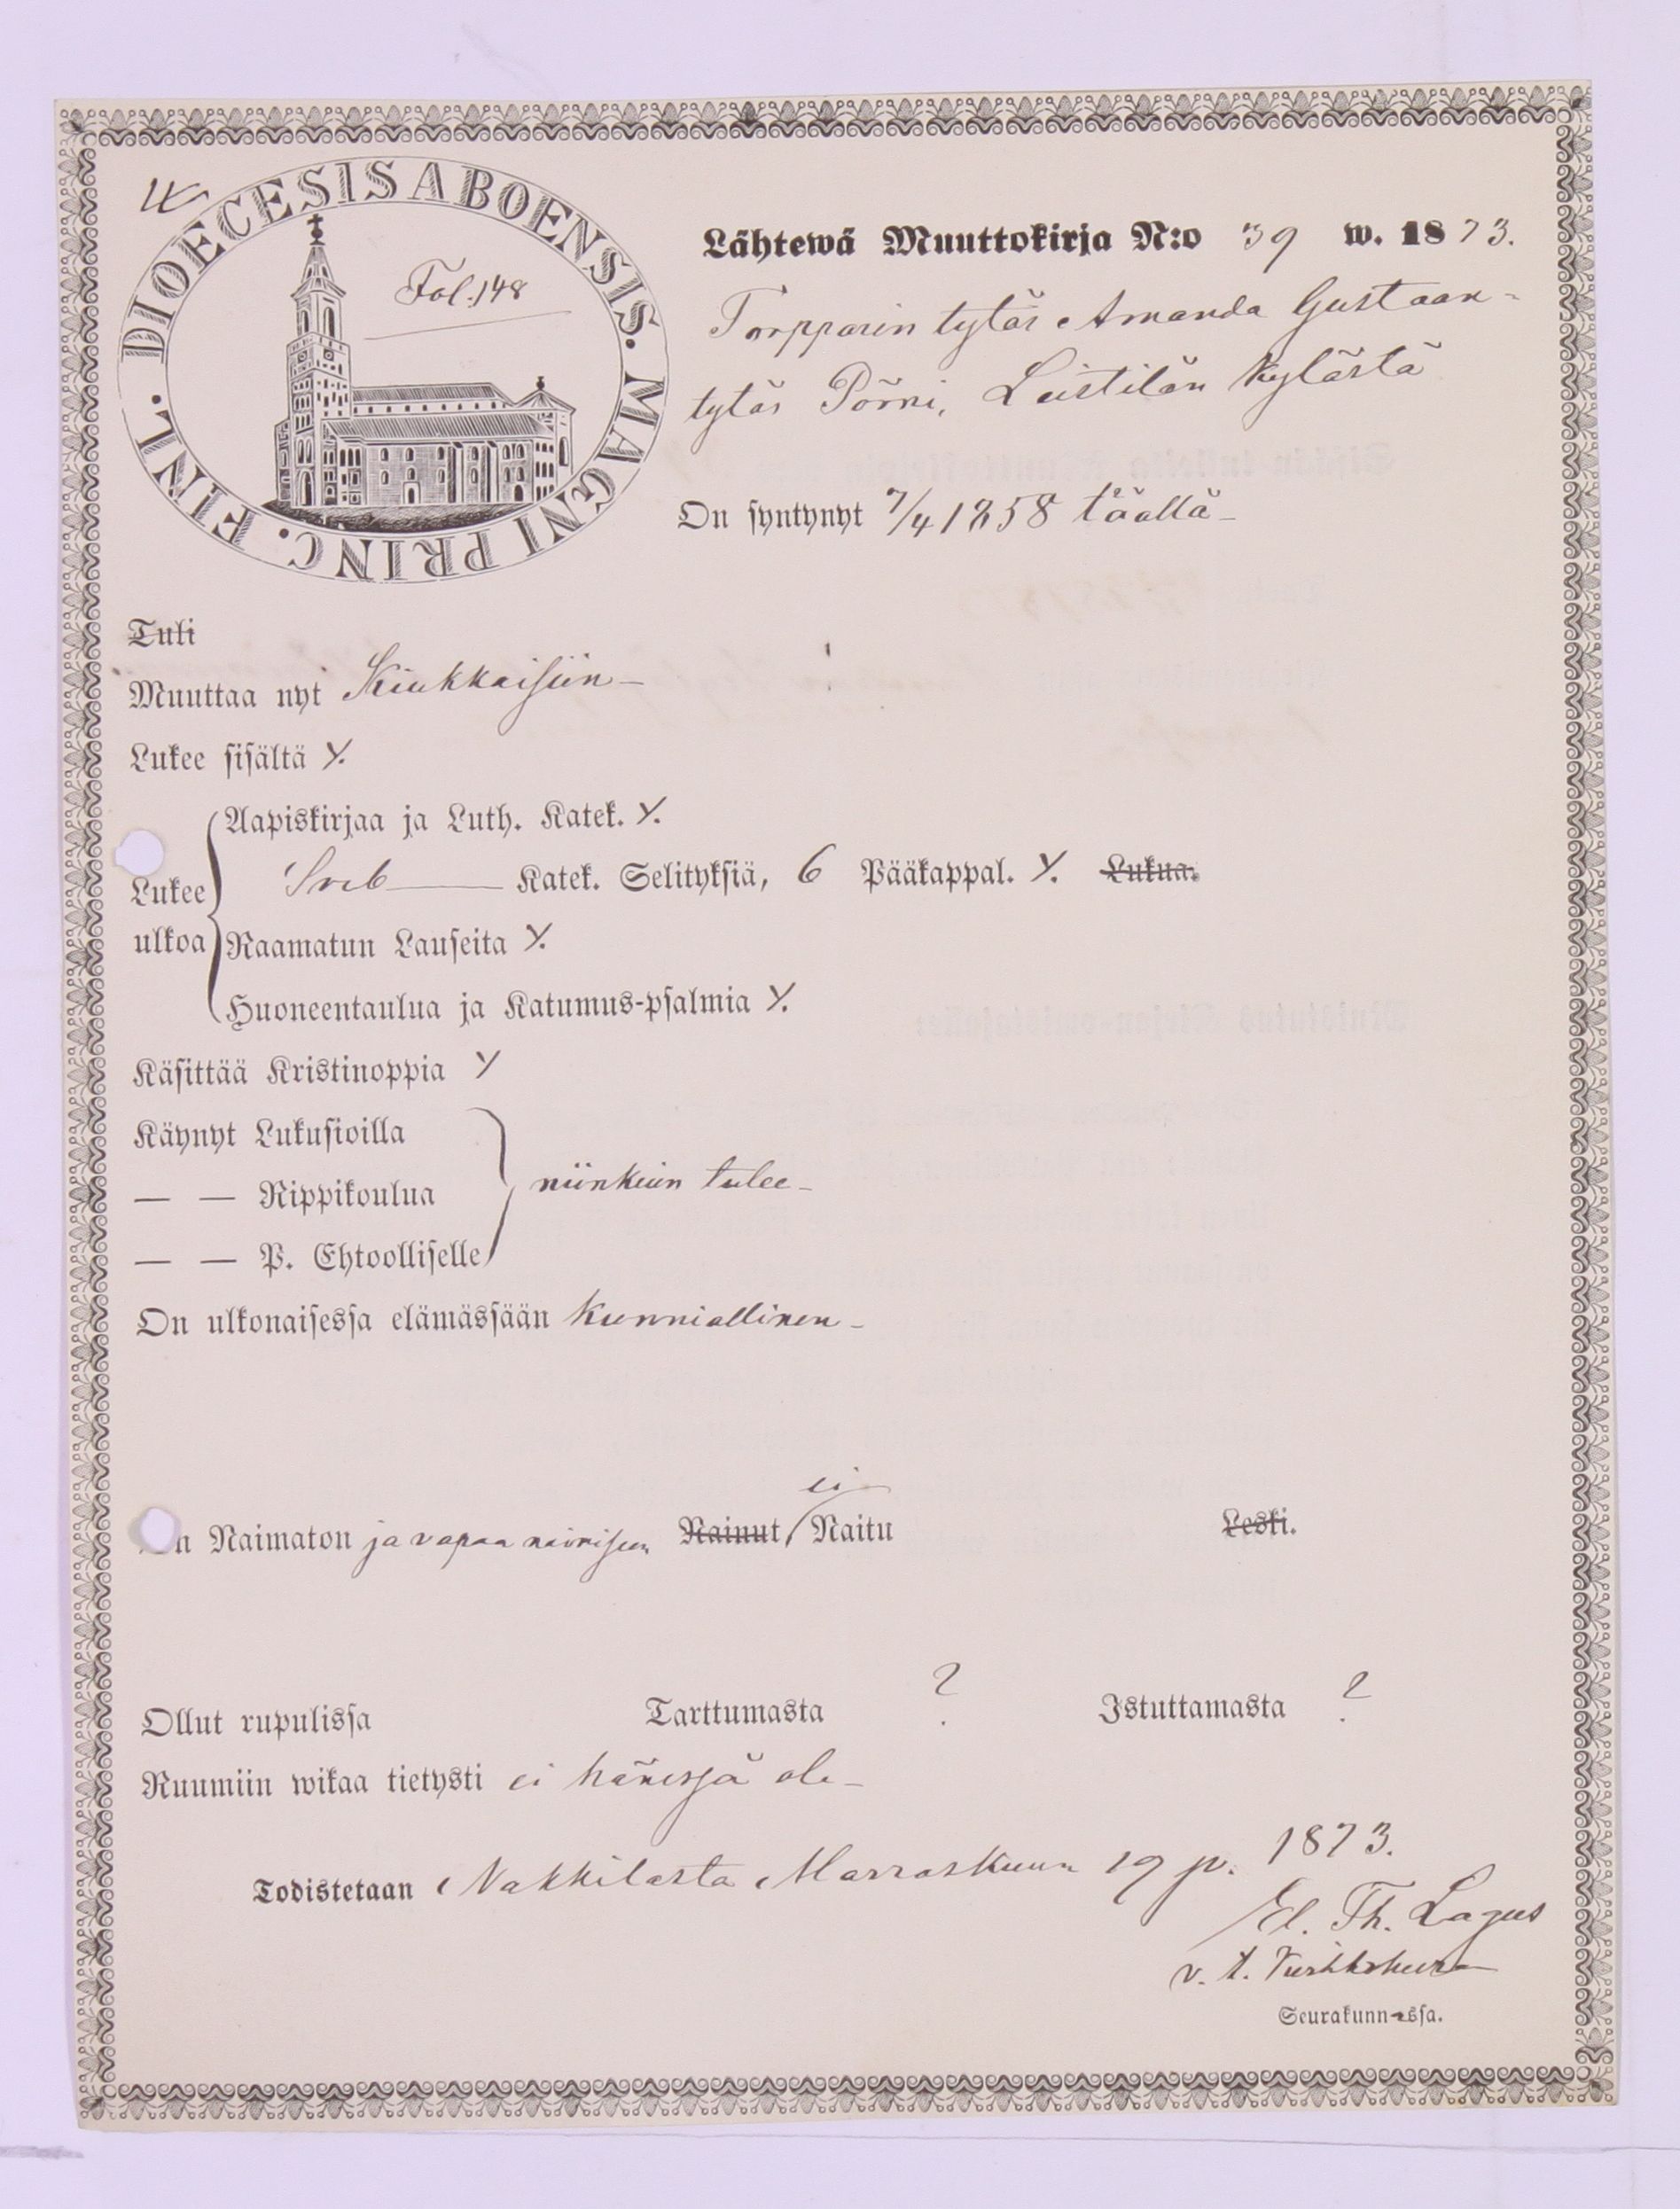 DIOECESIS ABOENSIS. MAGNI PRINC. FINL.
Fol. 148
Lähtewä Muuttokirja N:o 39 w. 1873.
Torpparin tytär Amanda Gustaan-
tytär Pörni, Leistilän kylästä
On syntynyt 7/4 1858 täällä-
Tuli
Muuttaa nyt Kiukkaisiin-
Lukee sisältä Y.
Aapiskirjaa ja Luth. Katek. Y.
Lukee Sveb Katek. Selityksiä, 6 Pääkappal. Y. Lukua.
ulkoa Raamatun Lauseita Y.
Huoneentaulua ja Katumus-psalmia Y.
Käsittää Kristinoppia Y
Käynyt Lukusioilla
— — Rippikoulua niinkuin tulee-
— — P. Ehtoolliselle
On ulkonaisessa elämässään kunniallinen-
ei
On Naimaton ja vapaa naimiseen Nainut Naitu Leski.
Ollut rupulissa Tarttumasta ? Istuttamasta ?
Ruumiin wikaa tietysti ei hänessä ole-
Todistetaan Nakkilasta Marraskuun 19 p. 1873.
El. Th. Lagus
v. t. Kirkkoherra
Seurakunn-essa.